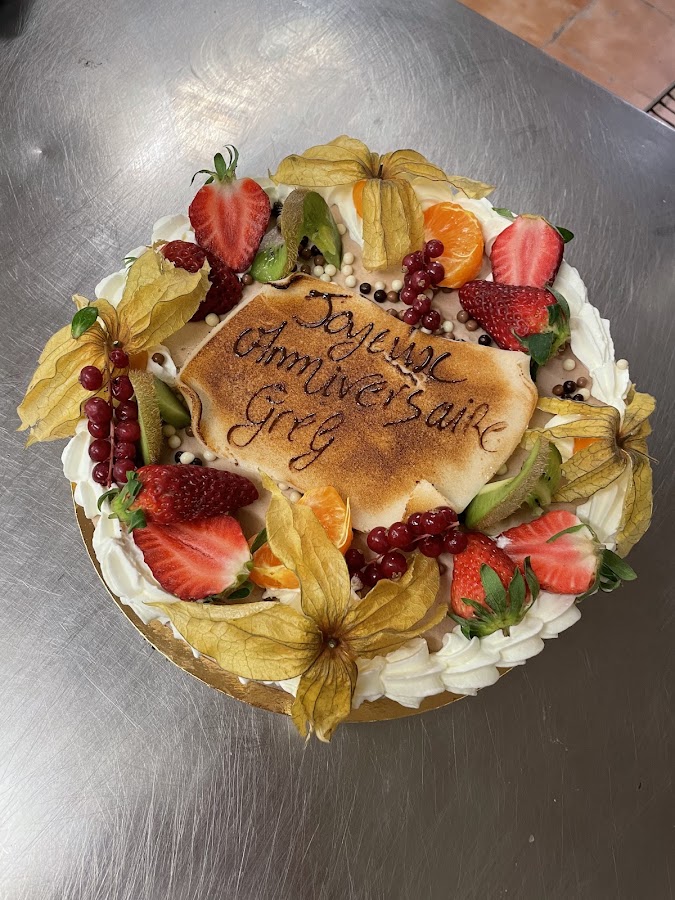 Joyeux
Anniversaire
Greg